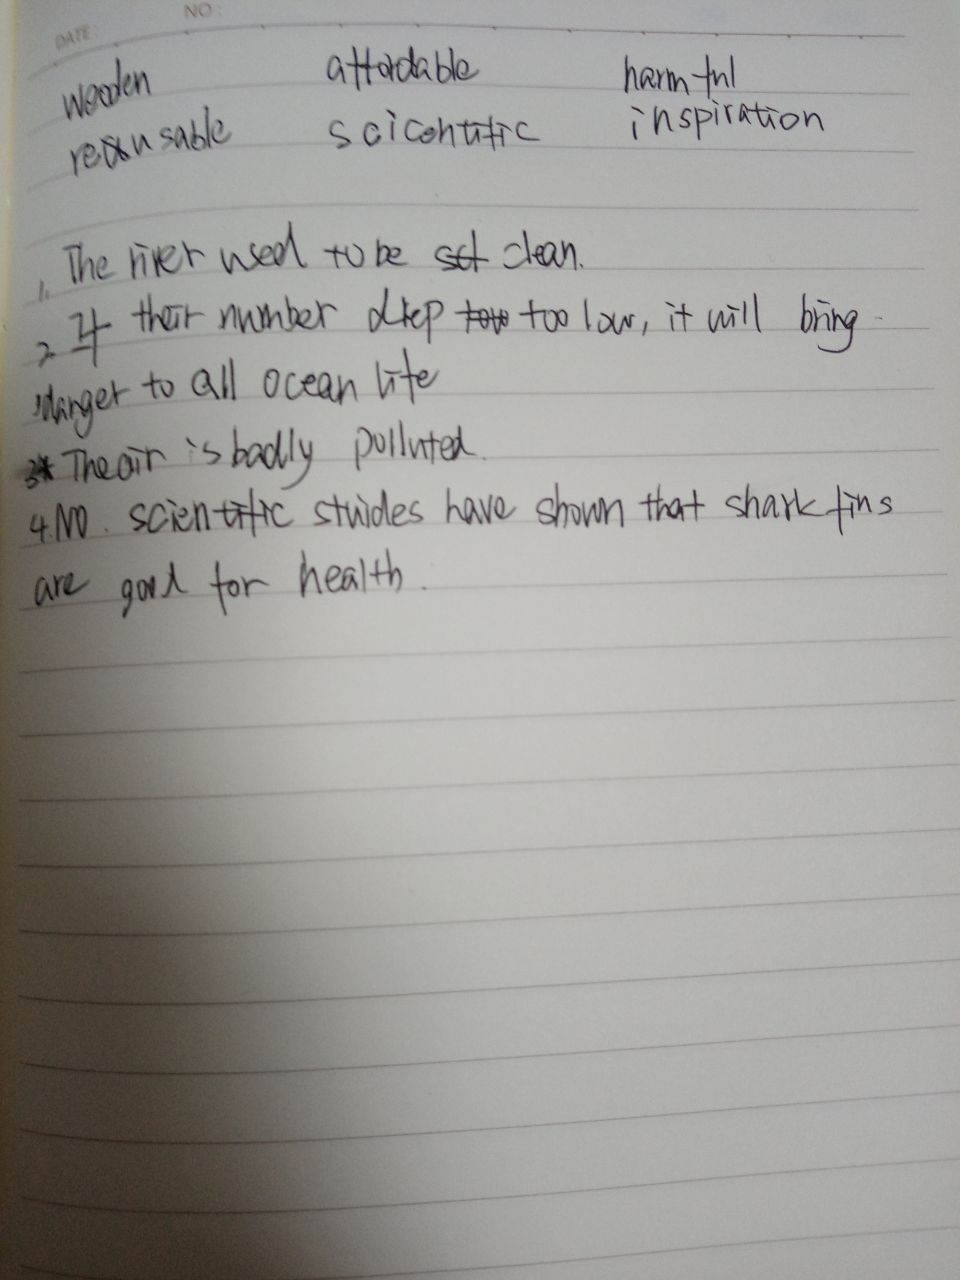 DATE: NO:
wooden affordable harmful
reausable scicontific inspiration
1. The river used to be set clean.
2. If their number drep tow too low, it will bring
danger to all ocean life
3. The air is badly polluted.
4. NO. scientific stuides have shown that shark fins
are good for health.